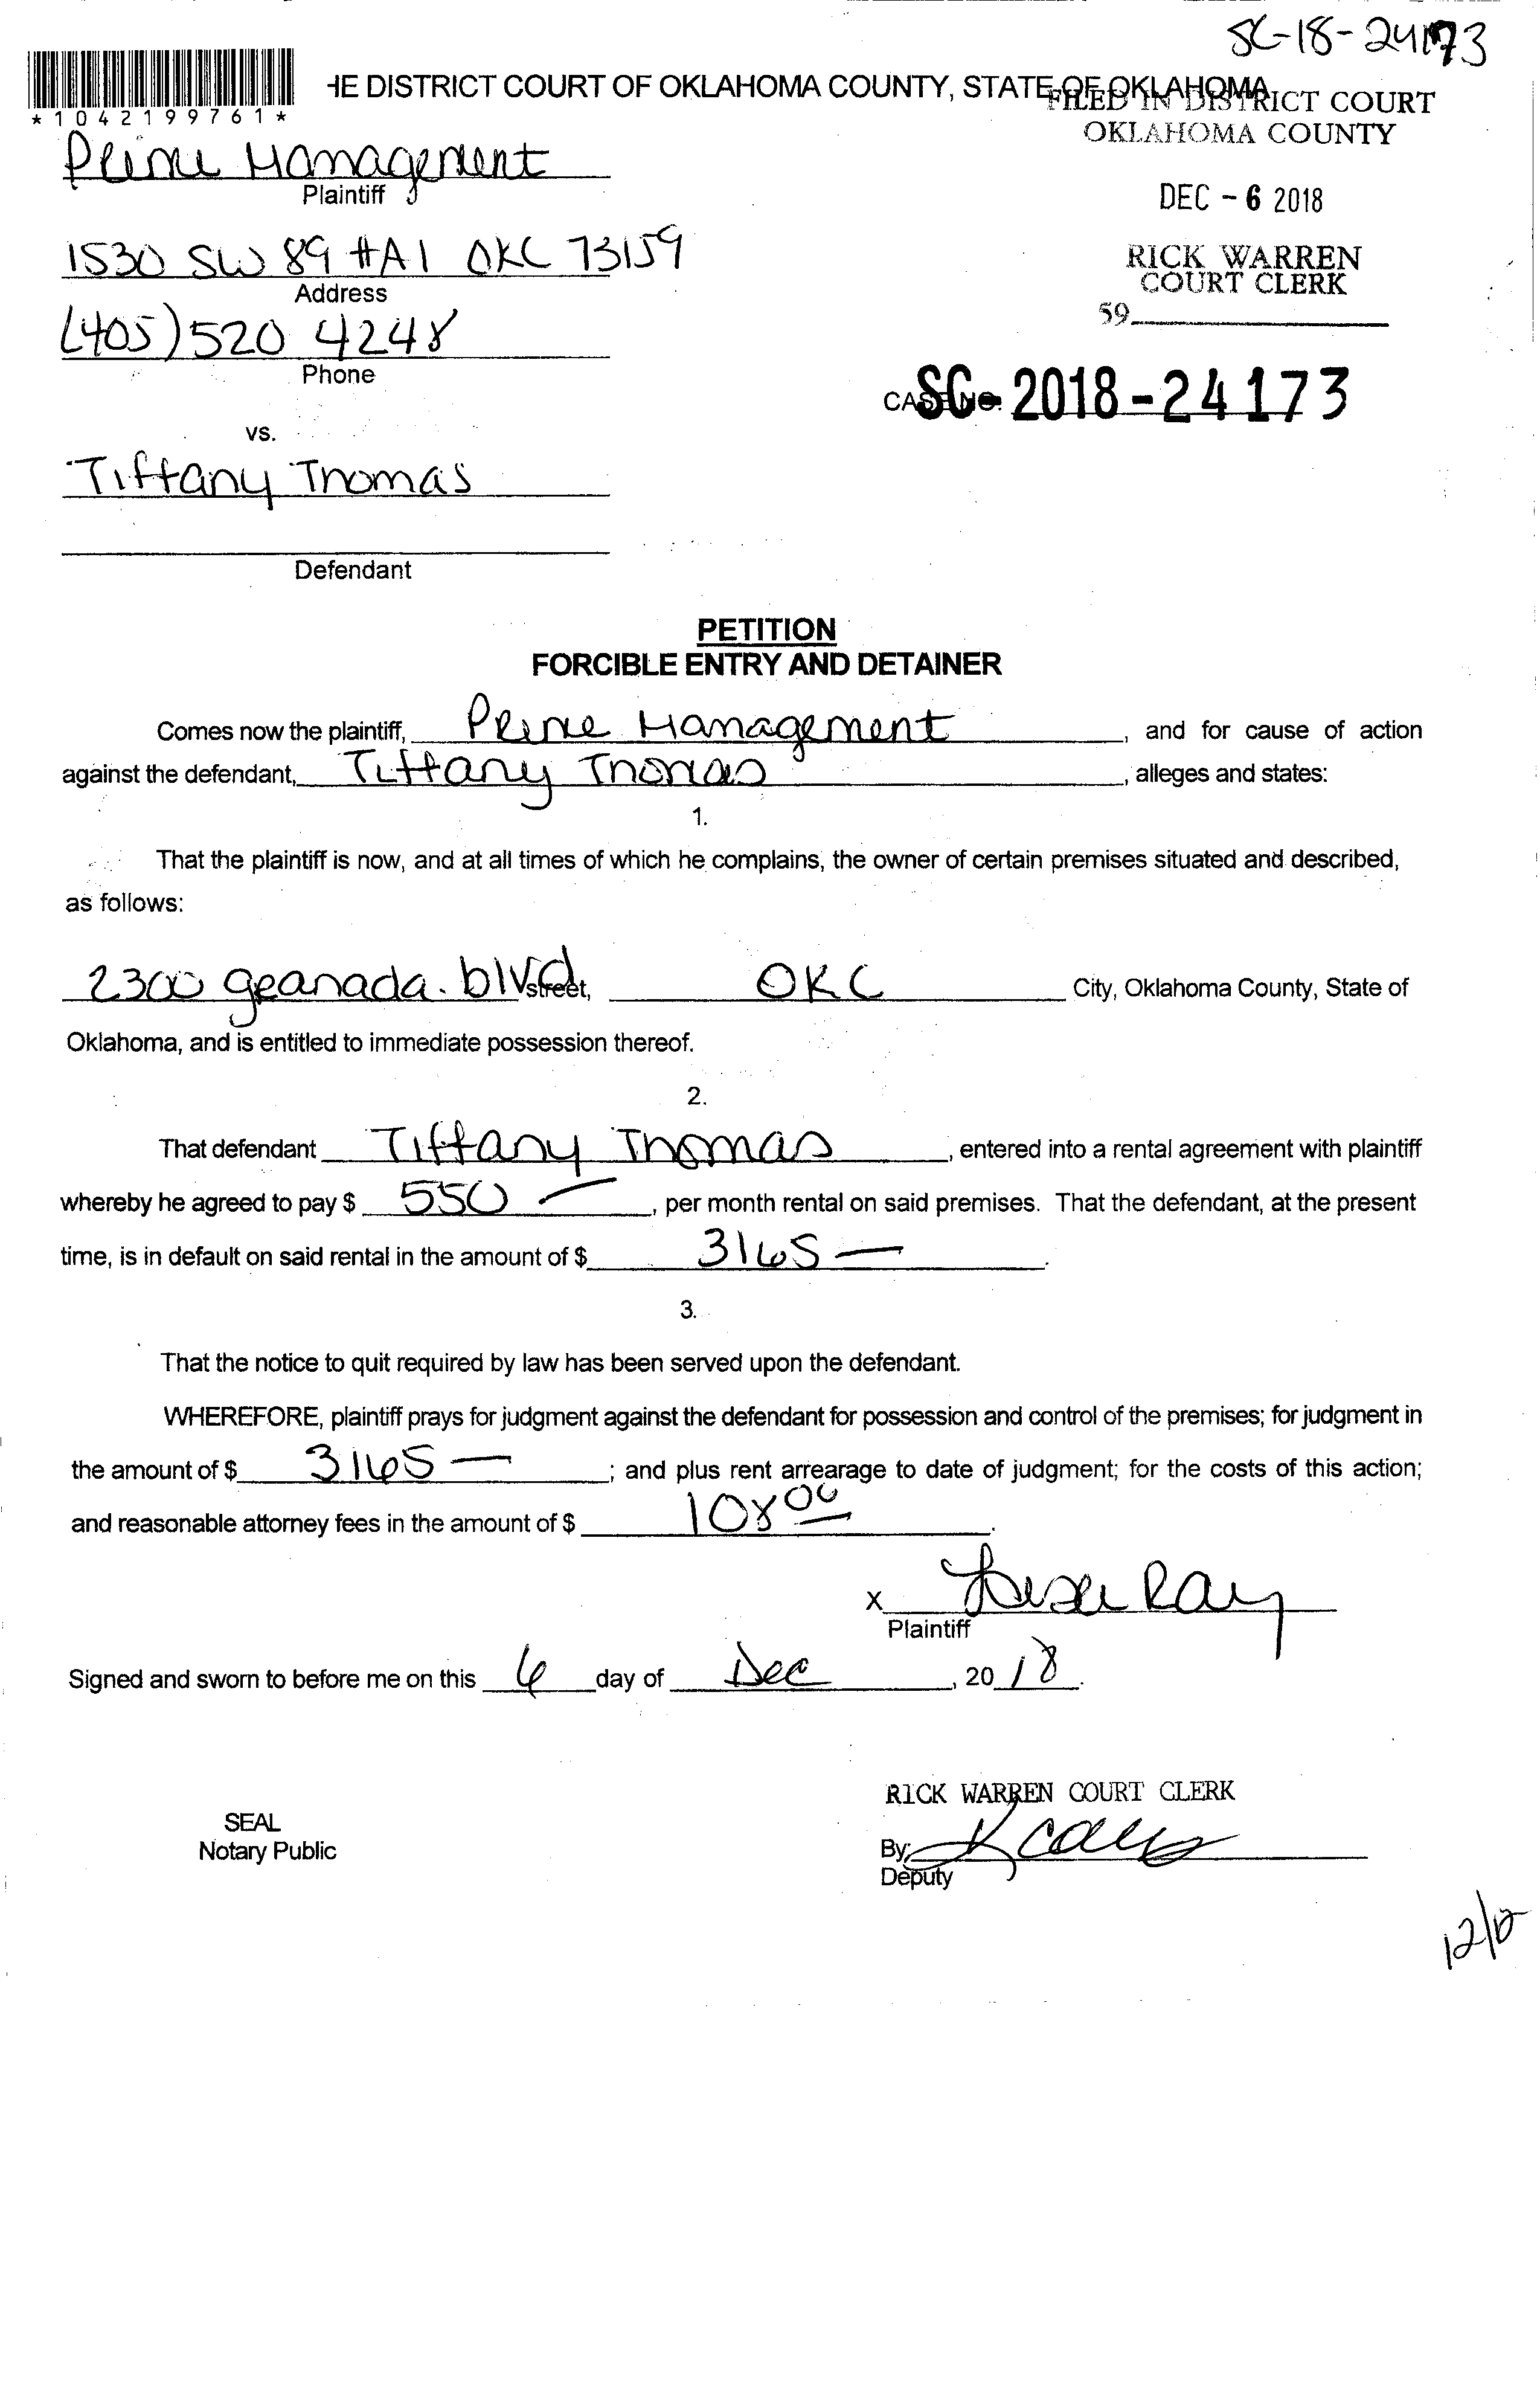 SC-18-24173
HE DISTRICT COURT OF OKLAHOMA COUNTY, STATE OF OKLAHOMA
FILED IN DISTRICT COURT
OKLAHOMA COUNTY
*1042199761*
Prime Management
Plaintiff
DEC - 6 2018
1530 SW 89 #A1 OKC 73159
Address
RICK WARREN
COURT CLERK
59
(405) 520 4248
Phone
CASE NO. SC-2018-24173
vs.
Tiffany Thomas
Defendant
PETITION
FORCIBLE ENTRY AND DETAINER
Comes now the plaintiff, Prime Management, and for cause of action
against the defendant, Tiffany Thomas, alleges and states:
1.
That the plaintiff is now, and at all times of which he complains, the owner of certain premises situated and described,
as follows:
2300 geanada. blvd street, OKC City, Oklahoma County, State of
Oklahoma, and is entitled to immediate possession thereof.
2.
That defendant Tiffany Thomas, entered into a rental agreement with plaintiff
whereby he agreed to pay $ 550 —, per month rental on said premises. That the defendant, at the present
time, is in default on said rental in the amount of $ 3165 —.
3.
That the notice to quit required by law has been served upon the defendant.
WHEREFORE, plaintiff prays for judgment against the defendant for possession and control of the premises; for judgment in
the amount of $ 3165 —; and plus rent arrearage to date of judgment; for the costs of this action;
and reasonable attorney fees in the amount of $ 108 00.
x Ray
Plaintiff
Signed and sworn to before me on this 6 day of Dec, 20 18.
RICK WARREN COURT CLERK
SEAL
Notary Public
By:
Deputy